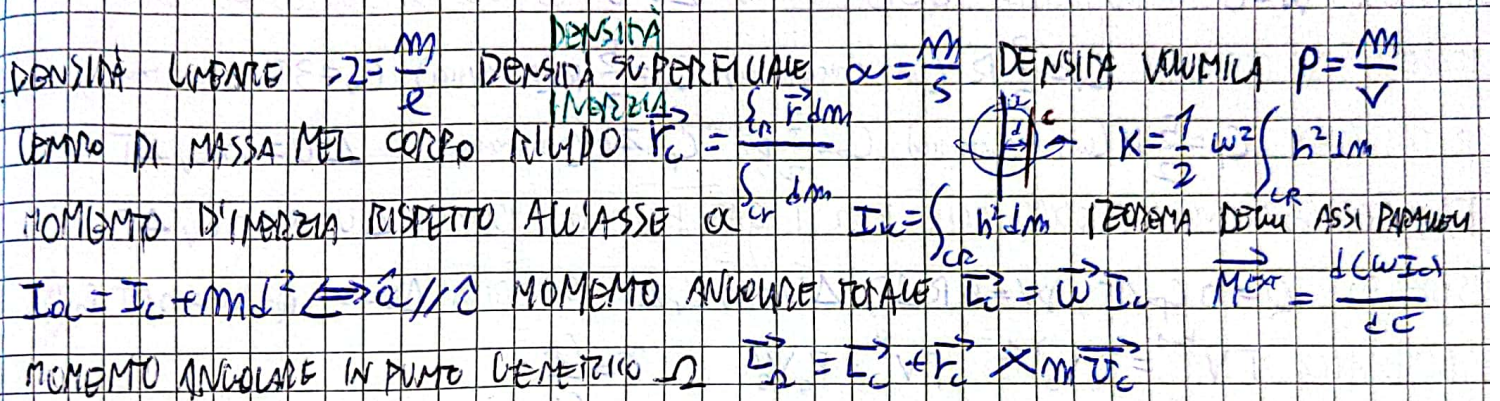 DENSITÀ
DENSITÀ LINEARE λ = m/l DENSITÀ SUPERFICIALE α = m/S DENSITÀ VOLUMICA ρ = m/V
INERZIA
CENTRO DI MASSA NEL CORPO RIGIDO r⃗_c = ∫_CR r⃗ dm / ∫_CR dm a d c K = 1/2 ω² ∫_CR h² dm
MOMENTO D'INERZIA RISPETTO ALL'ASSE a I_a = ∫_CR h² dm TEOREMA DEGLI ASSI PARALLELI
I_a = I_c + md² ⟺ â // ĉ MOMENTO ANGOLARE TOTALE L⃗_c = ω⃗ I_c M⃗^EXT = d(ωI_c)/dt
MOMENTO ANGOLARE IN PUNTO GENERICO Ω L⃗_Ω = L⃗_c + r⃗_c × m v⃗_c